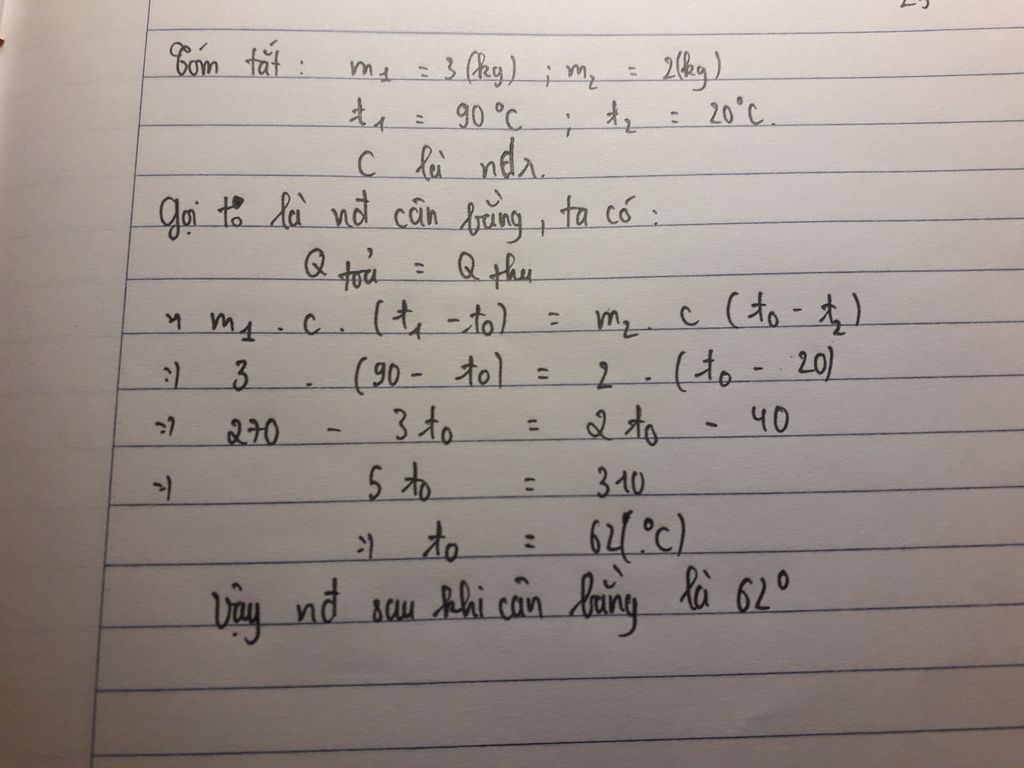 Tóm tắt: m₁ = 3 (kg) ; m₂ = 2(kg)
t₁ = 90°C ; t₂ = 20°C.
C là nđr.
Gọi t₀ là nđ cân bằng, ta có:
Q tỏa = Q thu
m₁ . c . (t₁ - t₀) = m₂ . c (t₀ - t₂)
=> 3 . (90 - t₀) = 2 . (t₀ - 20)
=> 270 - 3t₀ = 2t₀ - 40
=> 5t₀ = 310
=> t₀ = 62(°C)
Vậy nđ sau khi cân bằng là 62°